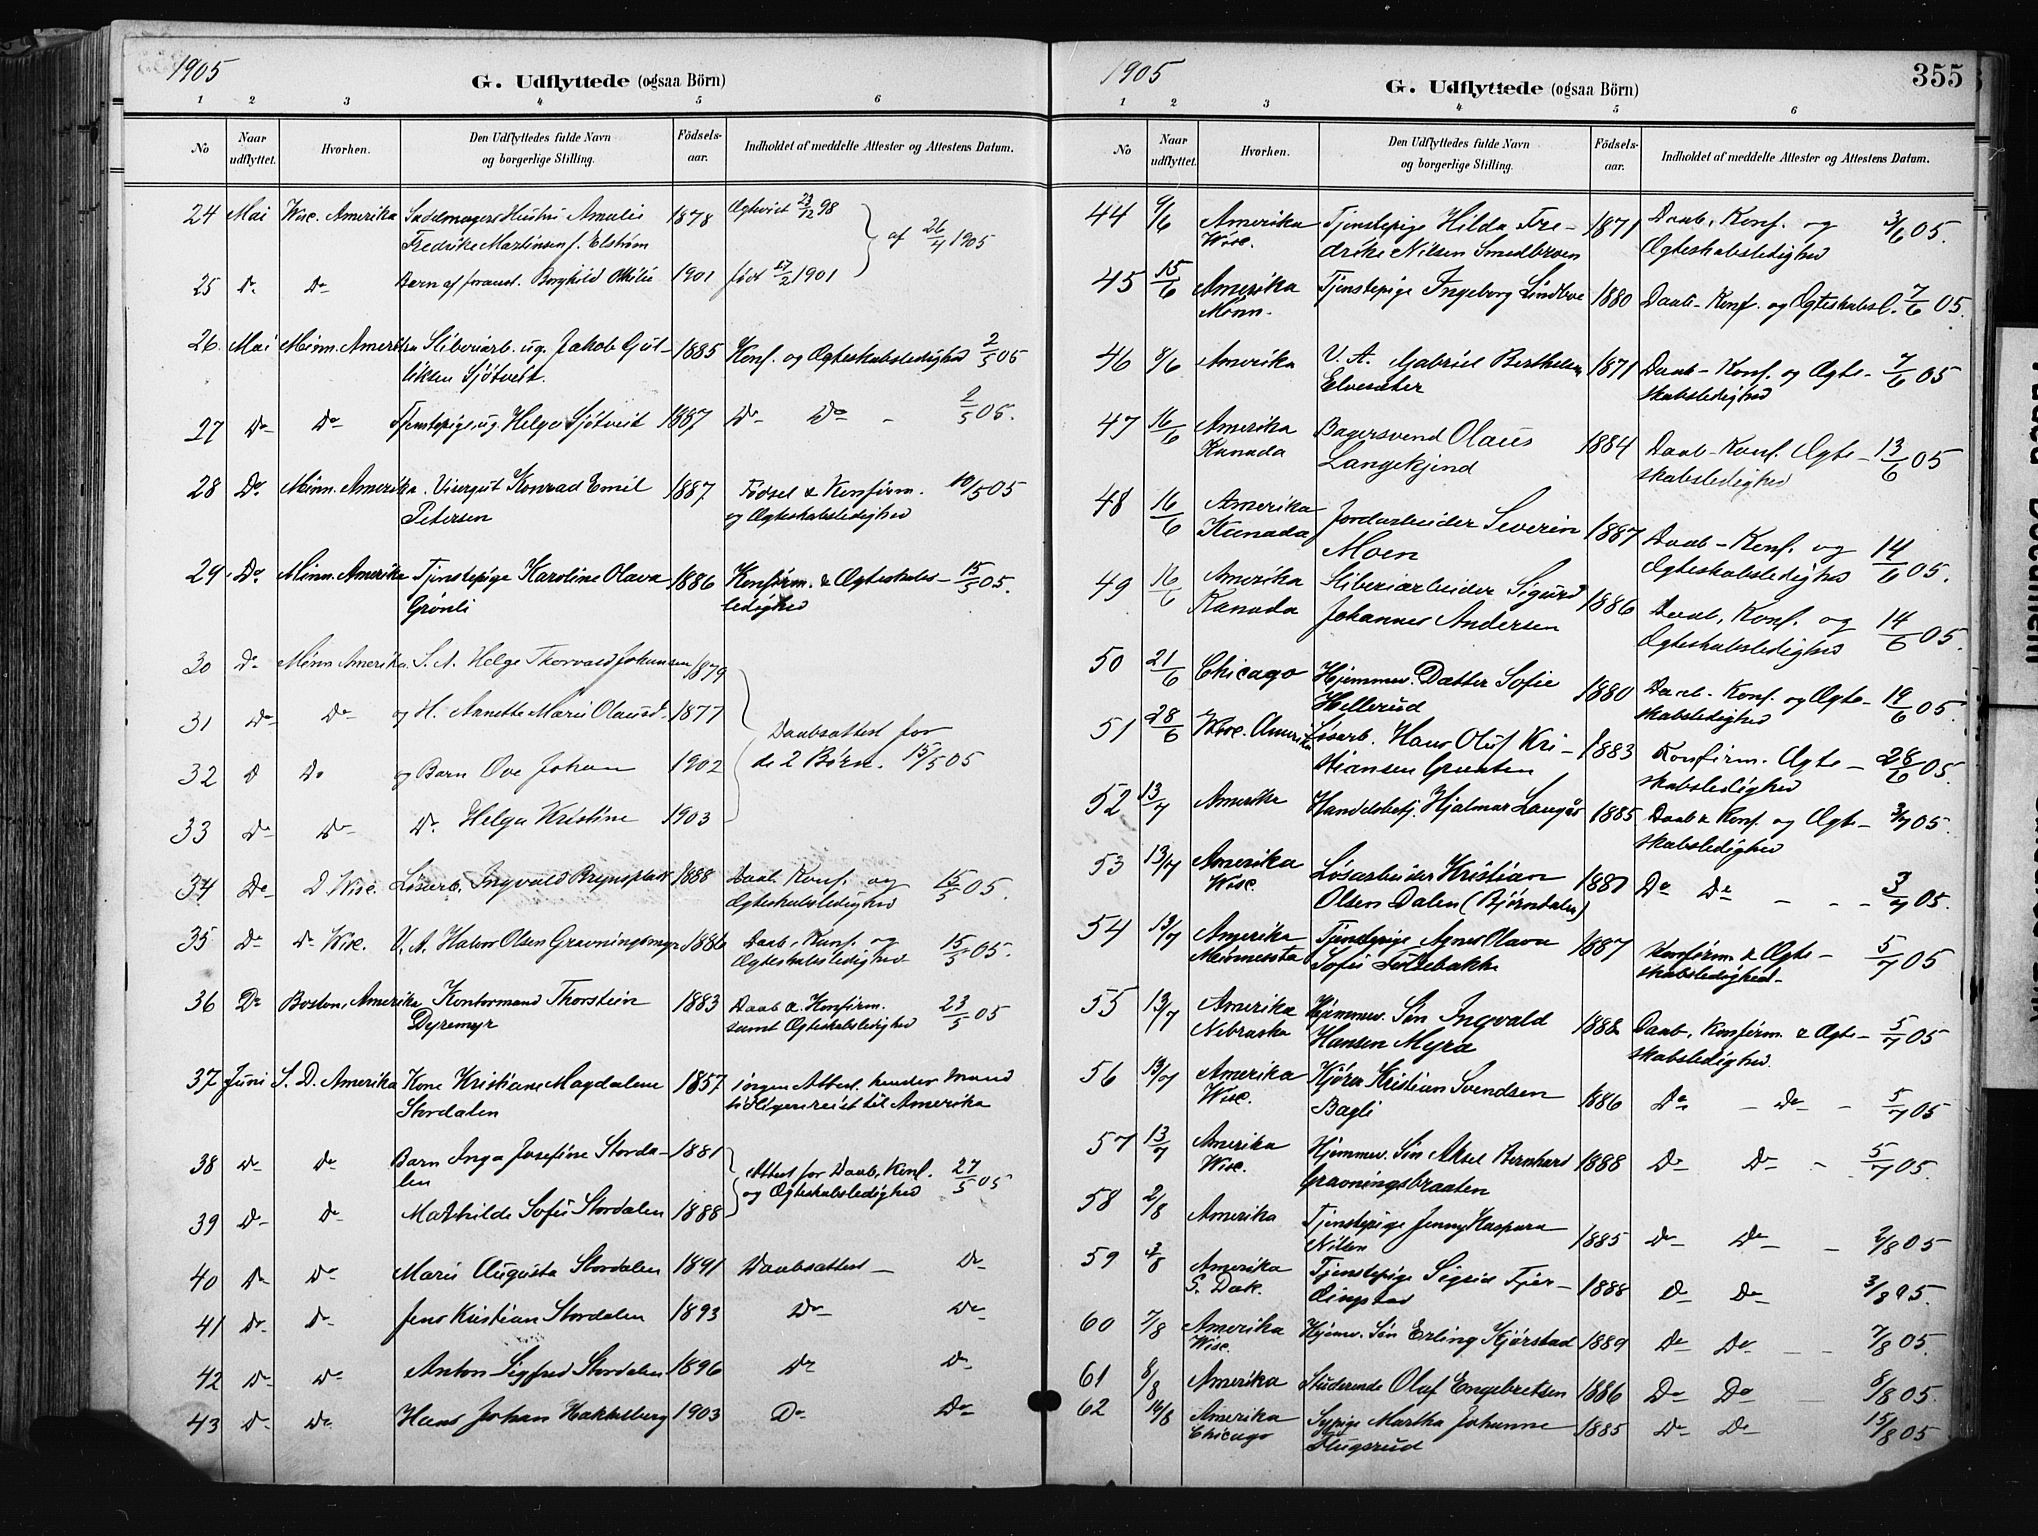 1905
G. Udflyttede (ogsaa Börn)
1 2 3 4 5 6
No Naar udflyttet. Hvorhen. Den Udflyttedes fulde Navn og borgerlige Stilling. Födsels-aar. Indholdet af meddelte Attester og Attestens Datum.
24 Mai Wisc. Amerika Sadelmagers Hustru Amalie 1878 Ægteviet 23/12 98
Fredrike Martinsen f. Elstrøm af 26/4 1905
25 Do Do Barn af foranst. Borghild Othilie 1901 født 17/2 1901
26. Mai Minn. Amerika Sliberiarb. ug. Jakob Gul- 1885 Konf. og Ægteskabsledighed 2/5 05
liksen Sjötveit.
27 Do Do Tjenstepige ug. Helga Sjötveit 1887 Do Do - 2/5 05.
28 Do Minn. Amerika. Visergut Konrad Emil 1887 Fødsel & Konfirm. 10/5 05
Petersen og Ægteskabsledighed
29 Do Minn. Amerika Tjenstepige Karoline Olava 1886 Konfirm. & Ægteskabs- 15/5 05.
Grönli ledighed
30 Do Minn Amerika. S. A. Helge Thorvald Johansen 1879
31 Do Do og H. Annette Marie Olausd. 1877
Daabsattest for
32 D Do og Barn Ove Johan 1902 de 2 Børn. 15/5 05
33 Do Do Do Helga Kristine 1903
34 Do D Wisc. Løsarb. Ingvald Brynsplads 1888 Daab. Konf. og 15/5 05.
Ægteskabsledighed
35 Do Do Wisc. U. A. Halvor Olsen Gravningsmyr 1886 Daab, Konf. og 15/5 05.
Ægteskabsledighed
36 Do Boston, Amerika Kontormand Thorstein 1883 Daab & Konfirm. 23/5 05
Dyremyr samt Ægteskabsledighed
37 Juni S. D. Amerika Kone Kristiane Magdalene 1857 ingen Attest. hendes Mand
Stordalen tidligere reist til Amerika
38 Do Do Barn Inga Josefine Storda- 1881 Attest for Daab, Konf. 27/5 05
len og Ægteskabsledighed
39 Do Do Mathilde Sofie Stordalen 1888
40 Do Do Marie Augusta Stordalen 1891 Daabsattest - Do
41 Do Do Jens Kristian Stordalen 1893 Do Do
42 Do Do Anton Sigfred Stordalen 1896 Do Do
43 Do Do Hans Johan Hakksberg 1903 Do Do
1905
G. Udflyttede (ogsaa Börn)
355
1 2 3 4 5 6
No Naar udflyttet. Hvorhen. Den Udflyttedes fulde Navn og borgerlige Stilling. Födsels-aar. Indholdet af meddelte Attester og Attestens Datum.
44 9/6 Amerika Tjenstepige Hilda Fre- 1871 Daab, Konf. og 3/6 05.
Wisc. drike Nilsen Smedbroen Ægteskabsledighed
45 15/6 Amerika Tjenstepige Ingeborg Lindboe 1880 Daab- Konf. og Ægteskabsl. 7/6 05.
Minn.
46 8/6 Amerika U. A. Gabriel Berthelsen 1871 Daab- Konf. og Ægte- 7/6 05
Elvesæter skabsledighed
47 16/6 Amerika Bagersvend Olaus 1884 Daab-Konf. Ægte- 13/6 05
Kanada Langekjend skabsledighed
48 16/6 Amerika Jordarbeider Severin 1887 Daab- Konf. og 14/6 05.
Kanada Moen Ægteskabsledighed
49 16/6 Amerika Sliberiarbeider Sigurd 1886 Daab, Konf. og 14/6 05.
Kanada Johannes Andersen Ægteskabsledighed
50 21/6 Chicago Hjemmev. Datter Sofie 1880 Daab- Konf. og Ægte- 19/6 05.
Hellerud skabsledighed
51 28/6 Wisc. Amerika Løsarb. Hans Oluf Kri- 1883 Konfirm. Ægte- 28/6 05.
stiansen skabsledighed
52 13/7 Amerika Handelsbetj. Hjalmar Langås 1885 Daab & Konf. og Ægte- 3/7 05.
skabsledighed
53 13/7 Amerika Løsarbeider Kristian 1887 Do Do - - - 3/7 05.
Wisc. Olsen Dalen (Bjørndalen)
54 13/7 Amerika Tjenstepige Agnes Olava 1887 Konfirm. & Ægte- 5/7 05
Minnesota Sofie skabsledighed.
55 13/7 Amerika Hjemmev. Søn Ingvald 1888 Daab, Konfirm. & Ægte- 5/7 05
Nebraska Hansen Myra skabsledighed.
56 13/7 Amerika Kjører Kristian Svendsen 1886 Do - Do - 5/7 05
Wisc. Bagli
57 13/7 Amerika Hjemmev. Søn Aksel Bernhard 1888 Do Do - 5/7 05.
Wisc. Gravningsbraaten
58 2/8 Amerika Tjenstepige Jenny Kaspara 1885 Do Do - 2/8 05
Nilsen
59 3/8 Amerika Tjenstepige Sigrid Fjer- 1888 D Do 3/8 05.
S. Dak. dingstad
60 7/8 Amerika Hjemv. Søn Erling Kjørstad 1889 Do Do - - 7/8 05.
Wisc.
61 8/8 Amerika Studerende Olaf Engebretsen 1886 Do Do - 8/8 05.
62 16/8 Amerika Sypige Martha Johanne 1885 Do Do 15/8 05
Chicago Flugsrud